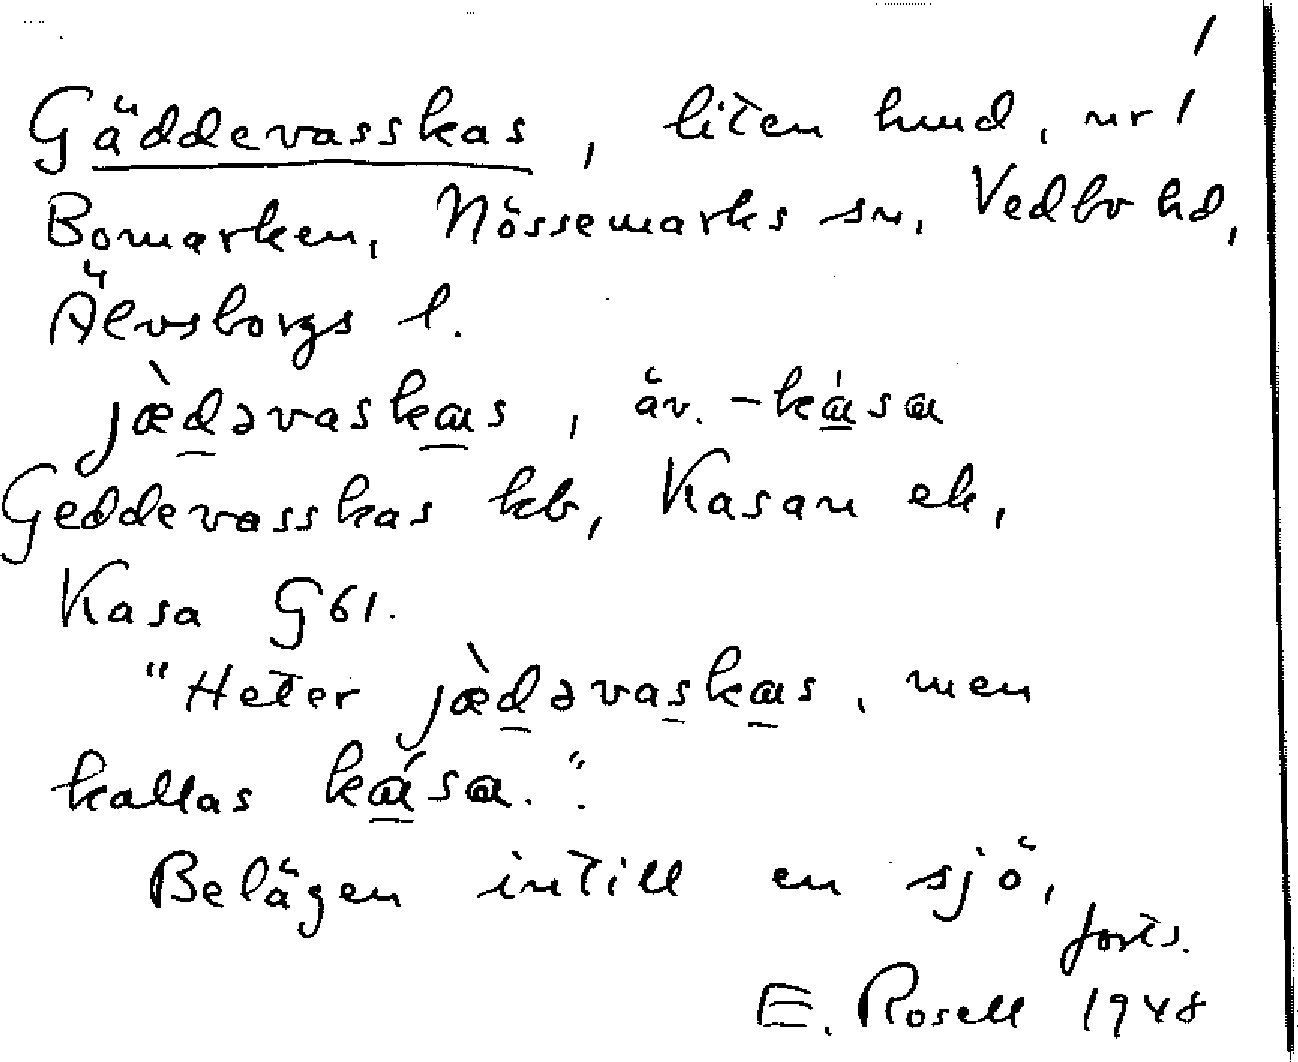 1
Gäddevasskas, liten hmd, nr 1
Bomarken, Nössemarks sn, Vedbo hd,
Älvsborgs l.
jæ̀d̲əvask̲a̲s, äv. -ká̲sa
Geddevasskas kb, Kasan ek,
Kasa G61.
"Heter jæ̀d̲əvas̲ka̲s, men
kallas ká̲sa.".
Belägen intill en sjö,
forts.
E. Rosell 1948